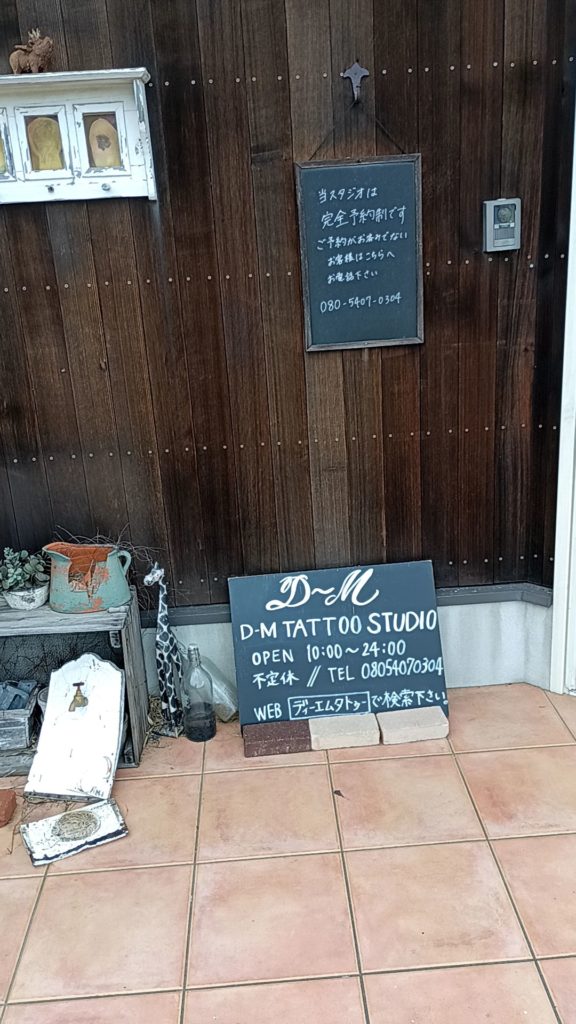 当スタジオは
完全予約制です
ご予約がお済みでない
お客様はこちらへ
お電話下さい
080-5407-0304
D~M
D-M TATTOO STUDIO
OPEN 10:00~24:00
不定休 // TEL 08054070304
WEB ディーエムタトゥー で検索下さい!